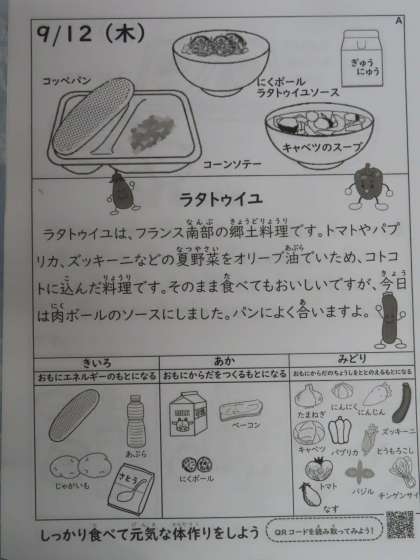 9/12（木）
A
コッペパン
にくボール
ラタトゥイユソース
ぎゅう
にゅう
キャベツのスープ
コーンソテー
ラタトゥイユ
ラタトゥイユは、フランス南部の郷土料理です。トマトやパプ
リカ、ズッキーニなどの夏野菜をオリーブ油でいため、コトコ
トに込んだ料理です。そのまま食べてもおいしいですが、今日
は肉ボールのソースにしました。パンによく合いますよ。
きいろ
あか
みどり
おもにエネルギーのもとになる
おもにからだをつくるもとになる
おもにからだのちょうしをととのえるもとになる
あぶら
じゃがいも
さとう
ベーコン
にくボール
たまねぎ
にんにく
にんじん
ズッキーニ
キャベツ
パプリカ
とうもろこし
トマト
バジル
チンゲンサイ
なす
しっかり食べて元気な体作りをしよう
QRコードを読み取ってみよう！